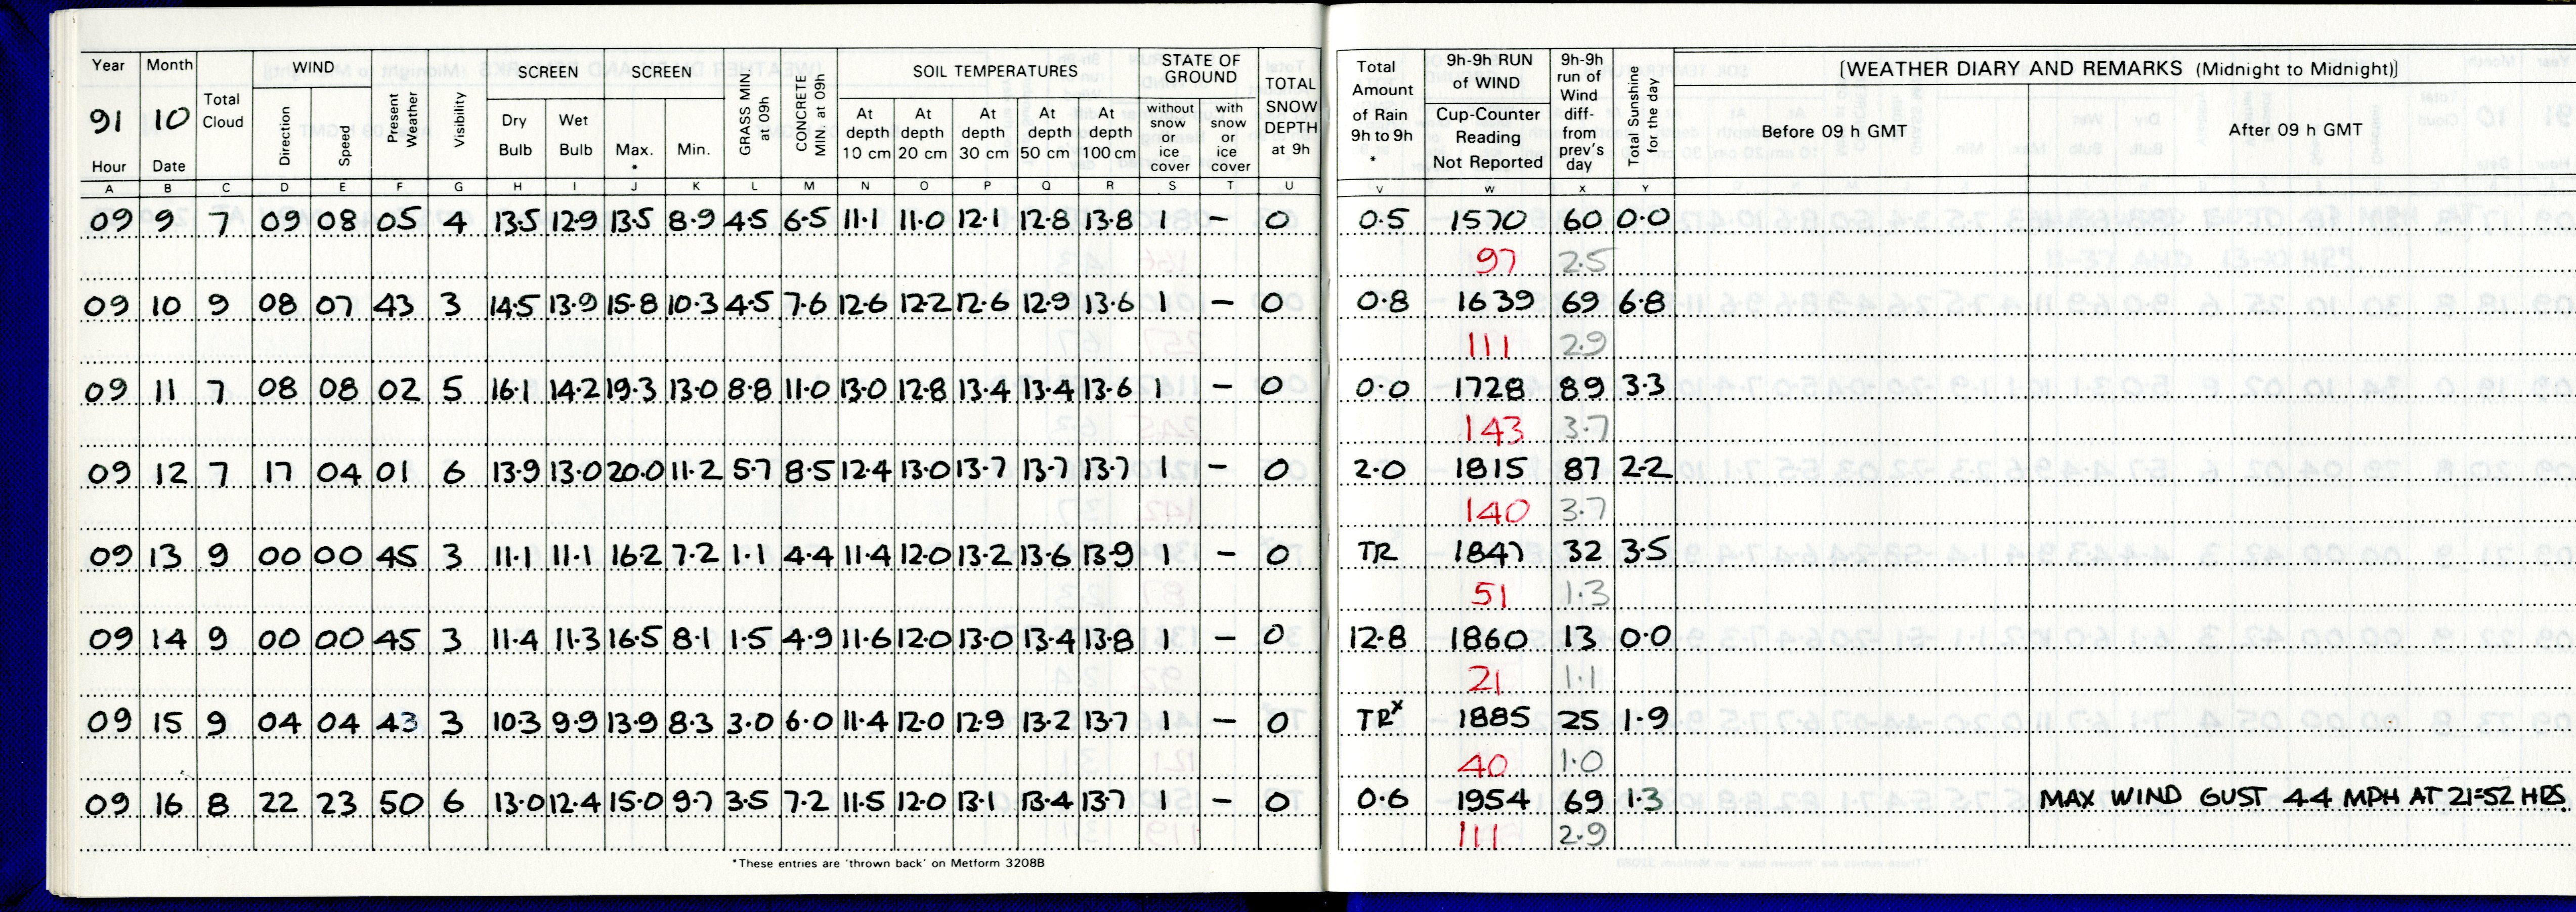 Year Month WIND SCREEN SCREEN SOIL TEMPERATURES STATE OF GROUND
91 10 Total Cloud Direction Speed Present Weather Visibility Dry Bulb Wet Bulb Max. * Min. GRASS MIN. at 09h CONCRETE MIN. at 09h At depth 10 cm At depth 20 cm At depth 30 cm At depth 50 cm At depth 100 cm without snow or ice cover with snow or ice cover TOTAL SNOW DEPTH at 9h
Hour Date
A B C D E F G H I J K L M N O P Q R S T U
09 9 7 09 08 05 4 13.5 12.9 13.5 8.9 4.5 6.5 11.1 11.0 12.1 12.8 13.8 1 – 0
09 10 9 08 07 43 3 14.5 13.9 15.8 10.3 4.5 7.6 12.6 12.2 12.6 12.9 13.6 1 – 0
09 11 7 08 08 02 5 16.1 14.2 19.3 13.0 8.8 11.0 13.0 12.8 13.4 13.4 13.6 1 – 0
09 12 7 17 04 01 6 13.9 13.0 20.0 11.2 5.7 8.5 12.4 13.0 13.7 13.7 13.7 1 – 0
09 13 9 00 00 45 3 11.1 11.1 16.2 7.2 1.1 4.4 11.4 12.0 13.2 13.6 13.9 1 – 0
09 14 9 00 00 45 3 11.4 11.3 16.5 8.1 1.5 4.9 11.6 12.0 13.0 13.4 13.8 1 – 0
09 15 9 04 04 43 3 10.3 9.9 13.9 8.3 3.0 6.0 11.4 12.0 12.9 13.2 13.7 1 – 0
09 16 8 22 23 50 6 13.0 12.4 15.0 9.7 3.5 7.2 11.5 12.0 13.1 13.4 13.7 1 – 0
*These entries are 'thrown back' on Metform 3208B
Total Amount of Rain 9h to 9h * 9h-9h RUN of WIND Cup-Counter Reading Not Reported 9h-9h run of Wind diff- from prev's day Total Sunshine for the day [WEATHER DIARY AND REMARKS (Midnight to Midnight)]
Before 09 h GMT After 09 h GMT
V W X Y
0.5 1570 60 0.0
97 2.5
0.8 1639 69 6.8
111 2.9
0.0 1728 89 3.3
143 3.7
2.0 1815 87 2.2
140 3.7
TR 1847 32 3.5
51 1.3
12.8 1860 13 0.0
21 1.1
TRx 1885 25 1.9
40 1.0
0.6 1954 69 1.3 MAX WIND GUST 44 MPH AT 21:52 HRS.
111 2.9